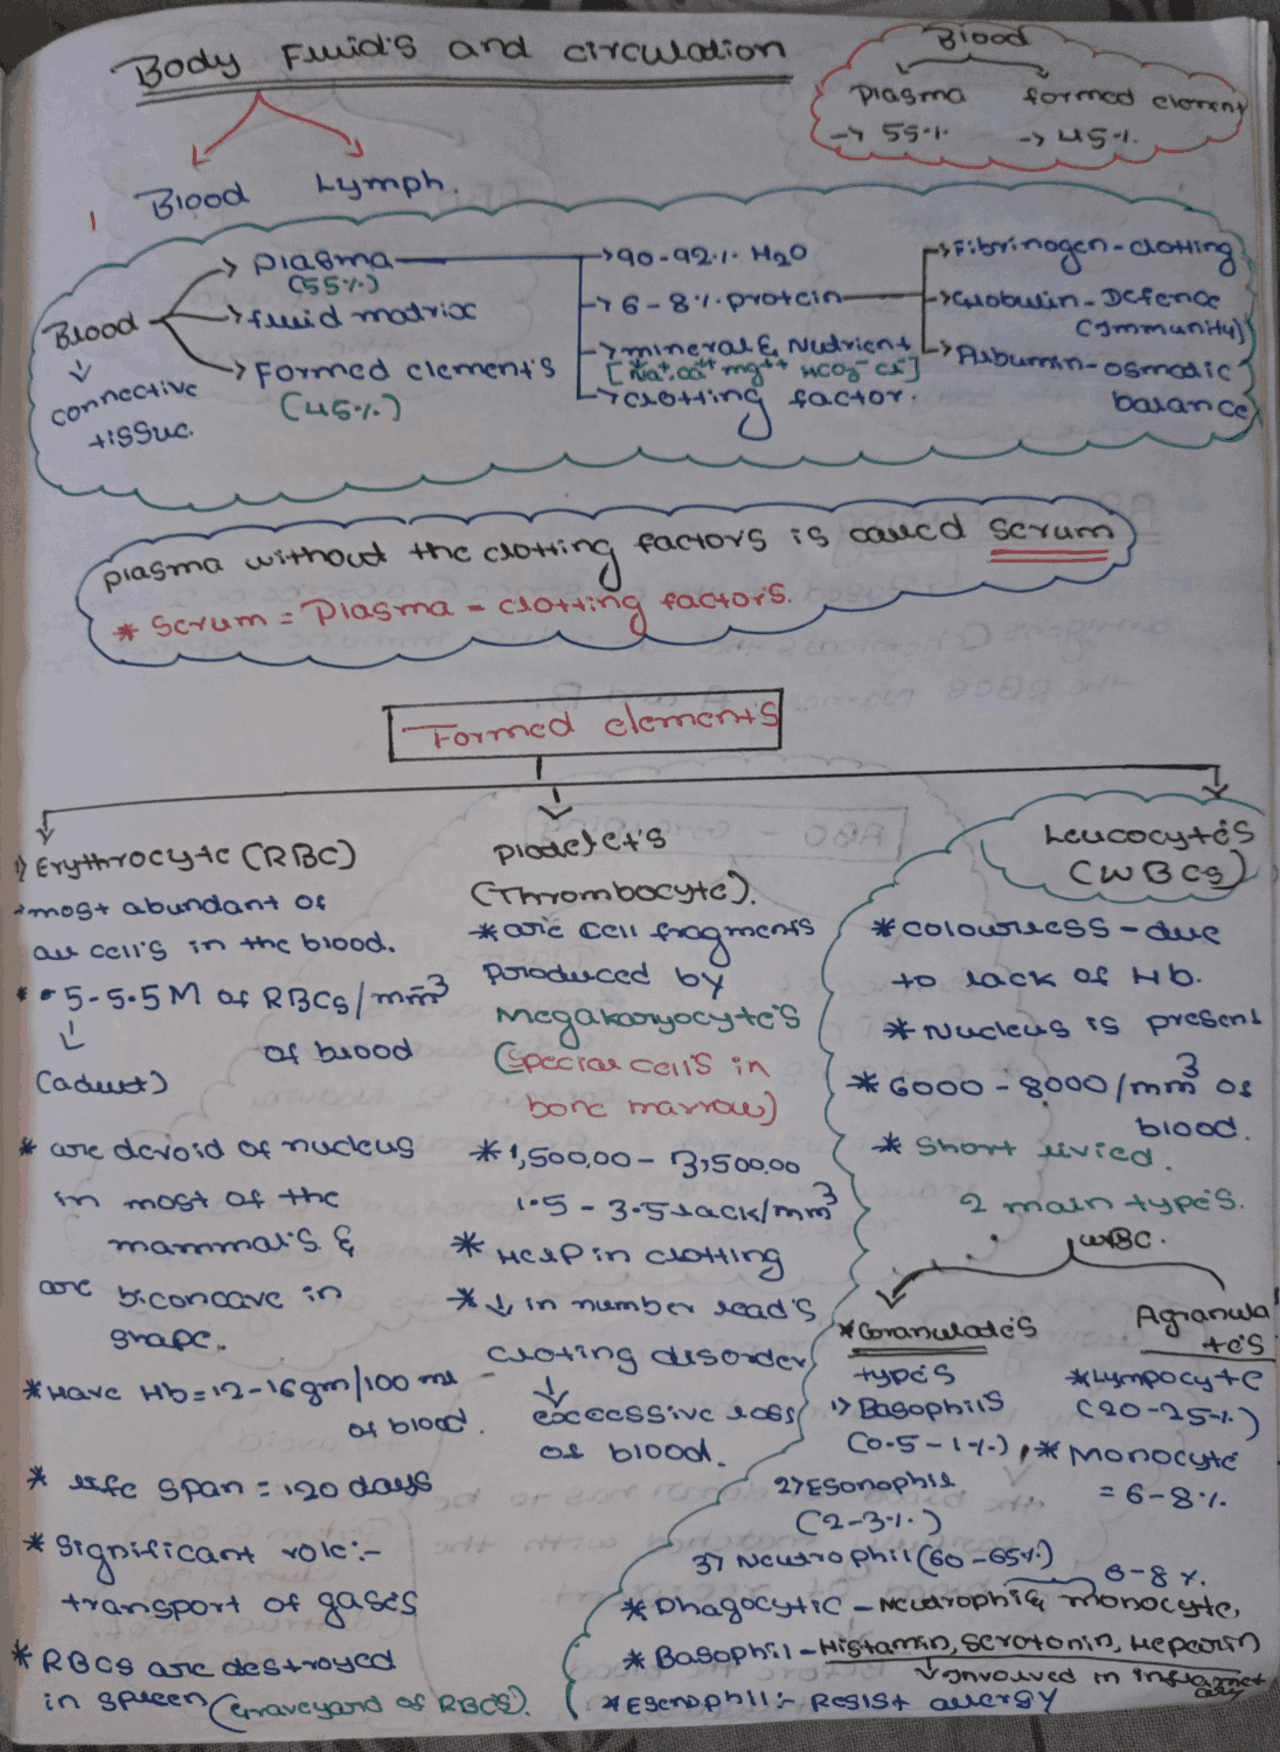 Body Fluid's and circulation
Blood
Plasma formed element
→ 55% → 45%
Blood Lymph.
1
Blood
↓
connective
tissue.
→ plasma
(55%)
→ fluid matrix
→ Formed element's
(45%)
→ 90-92% H2O
→ 6-8% protein
→ mineral & Nutrient
[Na+, Ca++ mg++ HCO3- Cl-]
→ clotting factor.
→ Fibrinogen - clotting
→ Globulin - Defence
(Immunity)
→ Albumin - osmotic
balance
plasma without the clotting factors is called serum
* Serum = Plasma - clotting factor's.
Formed element's
1) Erythrocyte (RBC)
most abundant of
all cell's in the blood.
* 5-5.5 M of RBCs/mm3
↓ of blood
(adult)
* are devoid of nucleus
in most of the
mammal's &
are biconcave in
shape.
* Have Hb = 12-16gm/100 ml
of blood.
* life span = 120 days
* significant role:-
transport of gases
* RBCs are destroyed
in spleen (Graveyard of RBC's).
Platelet's
(Thrombocyte).
* are cell fragments
produced by
Megakaryocyte's
(special cell's in
bone marrow)
* 1,500,00 - 3,500,00
1.5 - 3.5 lack/mm3
* Help in clotting
* ↓ in number lead's
cloting disorder
↓
excessive loss
of blood.
Leucocyte's
(WBCs)
* colourless - due
to lack of Hb.
* Nucleus is present
* 6000 - 8000/mm3 of
blood.
* short livied.
2 main type's.
WBC.
* Granulate's
type's
1) Basophil's
(0.5-1%)
2) Esonophil
(2-3%)
3) Neutrophil (60-65%)
Agranula
te's
* Lympocyte
(20-25%)
* Monocyte
= 6-8%
6-8%
* Phagocytic - Neutrophil & monocyte,
* Basophil - Histamin, Serotonin, Heparin
↓ Involved in inflamat
ory
* Esenophil:- Resist allergy